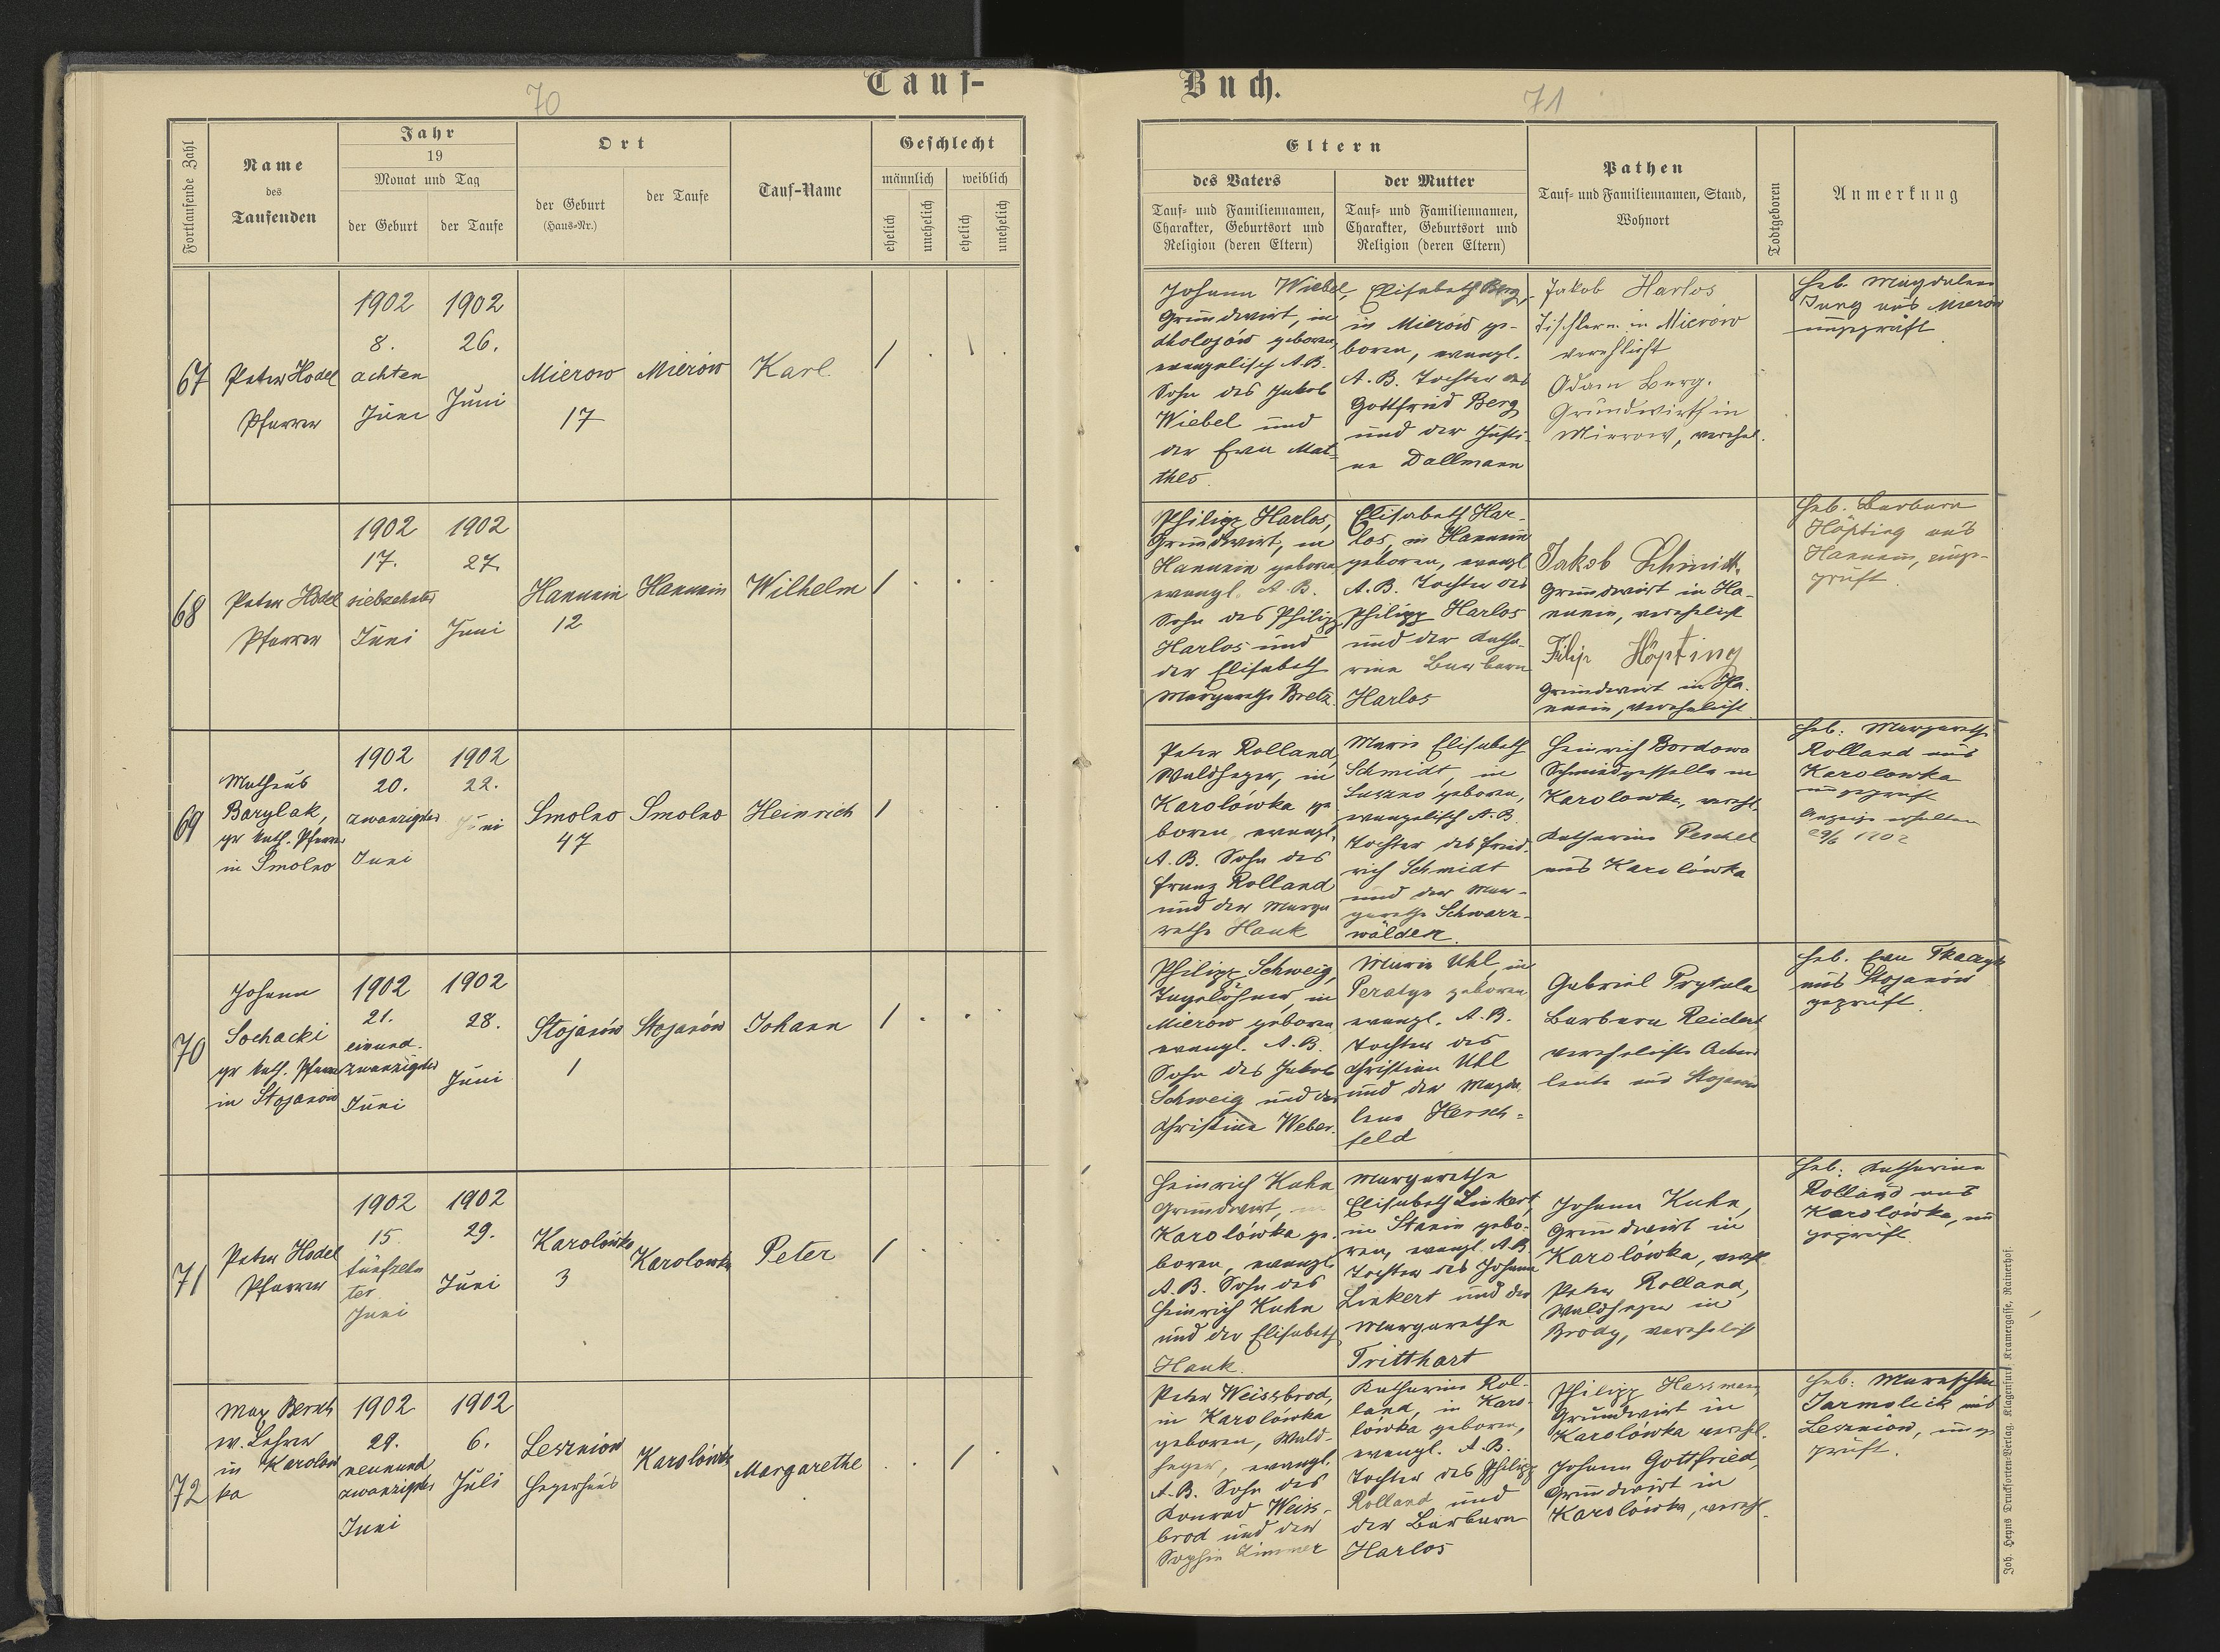 70
Tauf-
Fortlaufende Zahl
Name
des
Taufenden
Jahr
19
Monat und Tag
der Geburt
der Taufe
Ort
der Geburt
(Haus-Nr.)
der Taufe
Tauf-Name
Geschlecht
männlich
weiblich
ehelich
unehelich
ehelich
unehelich
67
Peter Hodel
Pfarrer
1902
8.
achten
Juni
1902
26.
Juni
Mierow
17
Mierów
Karl
1
68
Peter Hodel
Pfarrer
1902
17.
siebzehnter
Juni
1902
27.
Juni
Hanunin
12
Hanunin
Wilhelm
1
69
Matheus
Barylak,
gr kath. Pfarrer
in Smolno
1902
20.
zwanzigster
Juni
1902
22.
Juni
Smolno
47
Smolno
Heinrich
1
70
Johann
Sochacki
gr kath. Pfarrer
in Stojanów
1902
21.
einund-
zwanzigster
Juni
1902
28.
Juni
Stojanów
1
Stojanów
Johann
1
71
Peter Hodel
Pfarrer
1902
15
fünfzehn
ter
Juni
1902
29.
Juni
Karolówka
3
Karolowka
Peter
1
72
Max Bernh
ev. Lehrer
in Karolow
ka
1902
29.
neunund
zwanzigster
Juni
1902
6.
Juli
Leszniow
Hegerhaus
Karolówka
Margarethe
1
Buch.
71
Eltern
des Vaters
Tauf- und Familiennamen,
Charakter, Geburtsort und
Religion (deren Eltern)
der Mutter
Tauf- und Familiennamen,
Charakter, Geburtsort und
Religion (deren Eltern)
Pathen
Tauf- und Familiennamen, Stand,
Wohnort
Todtgeboren
Anmerkung
Johann Wiebel,
Grundwirt, in
Cholojów geboren,
evangelisch A.B.
Sohn des Jakob
Wiebel und
der Eva Mat-
thes
Elisabeth Berg,
in Mierów ge-
boren, evangl.
A.B. Tochter des
Gottfried Berg
und der Justi-
ne Dallmann
Jakob Harlos
Tischler in Mierów
verehlicht
Adam Berg.
Grundwirth in
Mierow, verehel.
Heb. Magdalena
Jung aus Mierów
ungeprüft
Philipp Harlos,
Grundwirt, in
Hanunin geboren
evangl. A.B.
Sohn des Philipp
Harlos und
der Elisabeth
Margarethe Bretz.
Elisabeth Har-
los, in Hanunin
geboren, evangl
A.B. Tochter des
Philipp Harlos
und der Katha-
rina Barbara
Harlos
Jakob Schmidt,
Grundwirt in Ha-
nunin, verehelicht
Filip Höpfing
Grundwirt in Ha-
nunin, verehelicht
Heb. Barbara
Höpfing aus
Hanunin, unge-
prüft.
Peter Rolland,
Waldheger, in
Karolówka ge
boren, evangl.
A.B. Sohn des
Franz Rolland
und der Marga
rethe Hauk
Marie Elisabeth
Schmidt, in
geboren,
evangelisch A.B.
Tochter des Fried-
rich Schmidt
und der Mar-
garethe Schwarz-
wälder.
Heinrich Bordowo
Schmiedgeselle in
Karolowka, verehl.
Katharina Peschel
aus Karolówka
Heb: Margareth
Rolland aus
Karolowka
ungeprüft
Anzeige erhalten
29/6 1902
Philipp Schweig,
Tagelöhner, in
Mierów geboren
evangl. A.B.
Sohn des Jakob
Schweig und der
Christine Weber.
Marie Uhl, in
Peratyn geboren,
evangl. A.B.
Tochter des
Christian Uhl
und der Magda
lena Hersch-
feld
Gabriel Prytula
Barbara Reichert
verehelichte Acker
leute aus Stojanów
Heb. Eva Tkaczyk
aus Stojanów
geprüft.
Heinrich Kuhn
Grundwirt, in
Karolówka ge-
boren, evangl
A.B. Sohn des
Heinrich Kuhn
und der Elisabeth
Hauk.
Margarethe
Elisabeth Linkert,
in Stanin gebo-
ren, evangl. A.B.
Tochter des Johann
Linkert und der
Margarethe
Tritthart
Johann Kuhn,
Grundwirt in
Karolówka, verehl
Peter Rolland,
Waldheger in
Brody, verehelicht
Heb: Katharina
Rolland aus
Karolówka, un
geprüft.
Peter Weiszbrod,
in Karolówka
geboren, Wald-
heger, evangl.
A.B. Sohn des
Konrad Weisz-
brod und der
Sophie Zimmer
Katharina Rol-
land, in Karo-
lówka geboren,
evangl. A.B.
Tochter des Philipp
Rolland und
der Barbara
Harlos
Philipp Hassman,
Grundwirt in
Karolówka verehl.
Johann Gottfried,
Grundwirt in
Karolówka, verehl.
Heb: Maraschka
Jarmolick aus
Leszniów, unge
prüft.
Joh. Heyns Drucksorten-Verlag, Klagenfurt, Kramergasse, Rainerhof.